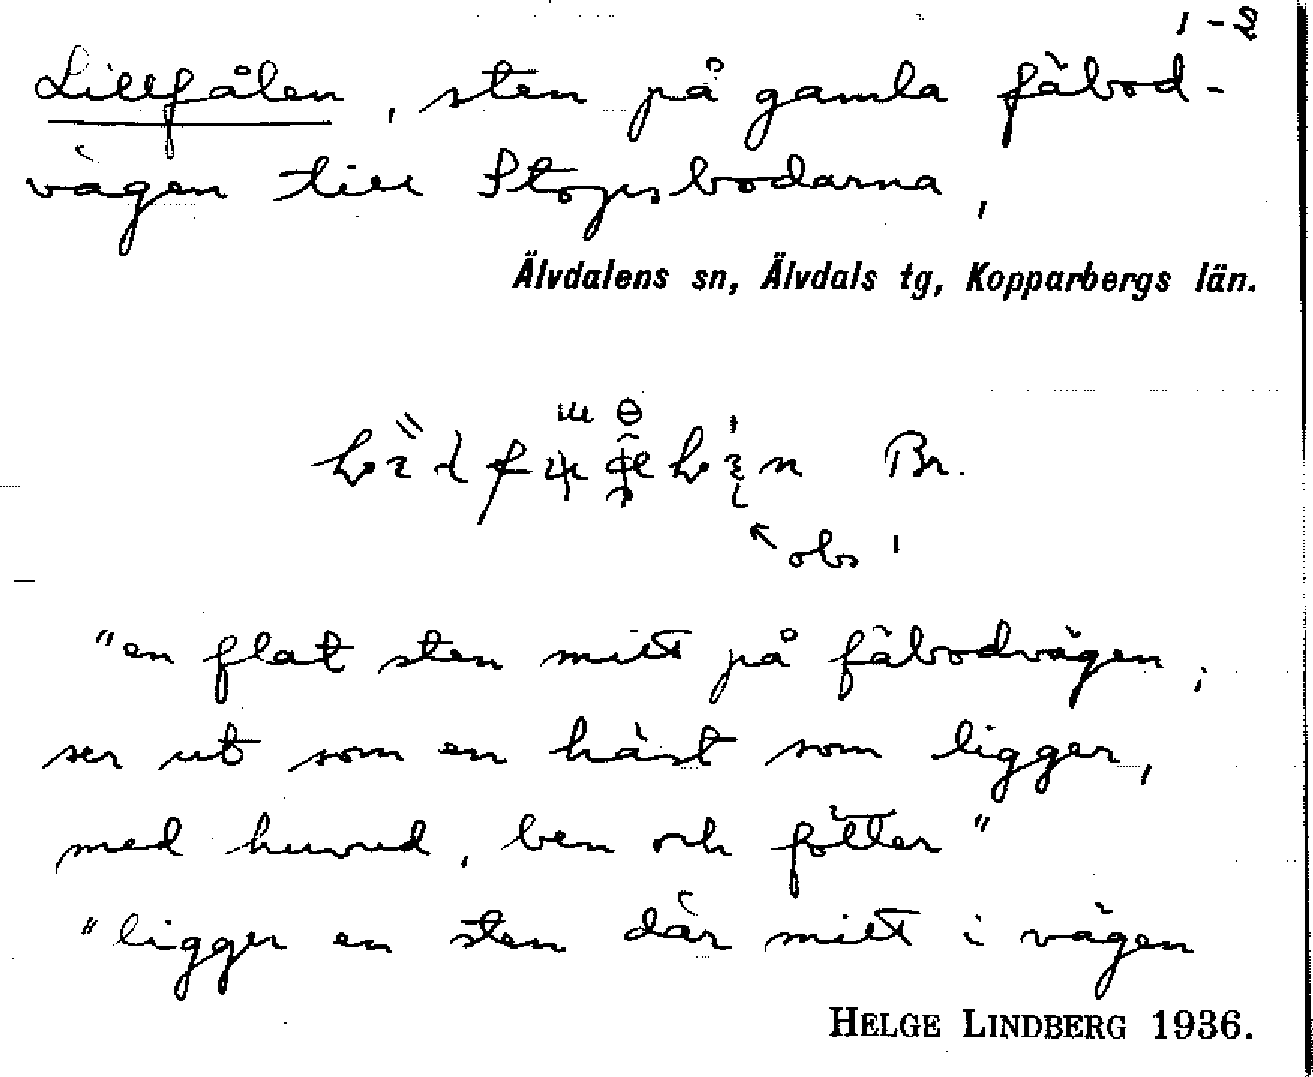 1-2
Lillfålen, sten på gamla fäbod-
vägen till Stopsbodarna,
Älvdalens sn, Älvdals tg, Kopparbergs län.
Br.
obs !
"en flat sten mitt på fäbodvägen,
ser ut som en häst som ligger,
med huvud, ben och fötter"
"ligger en sten där mitt i vägen
HELGE LINDBERG 1936.